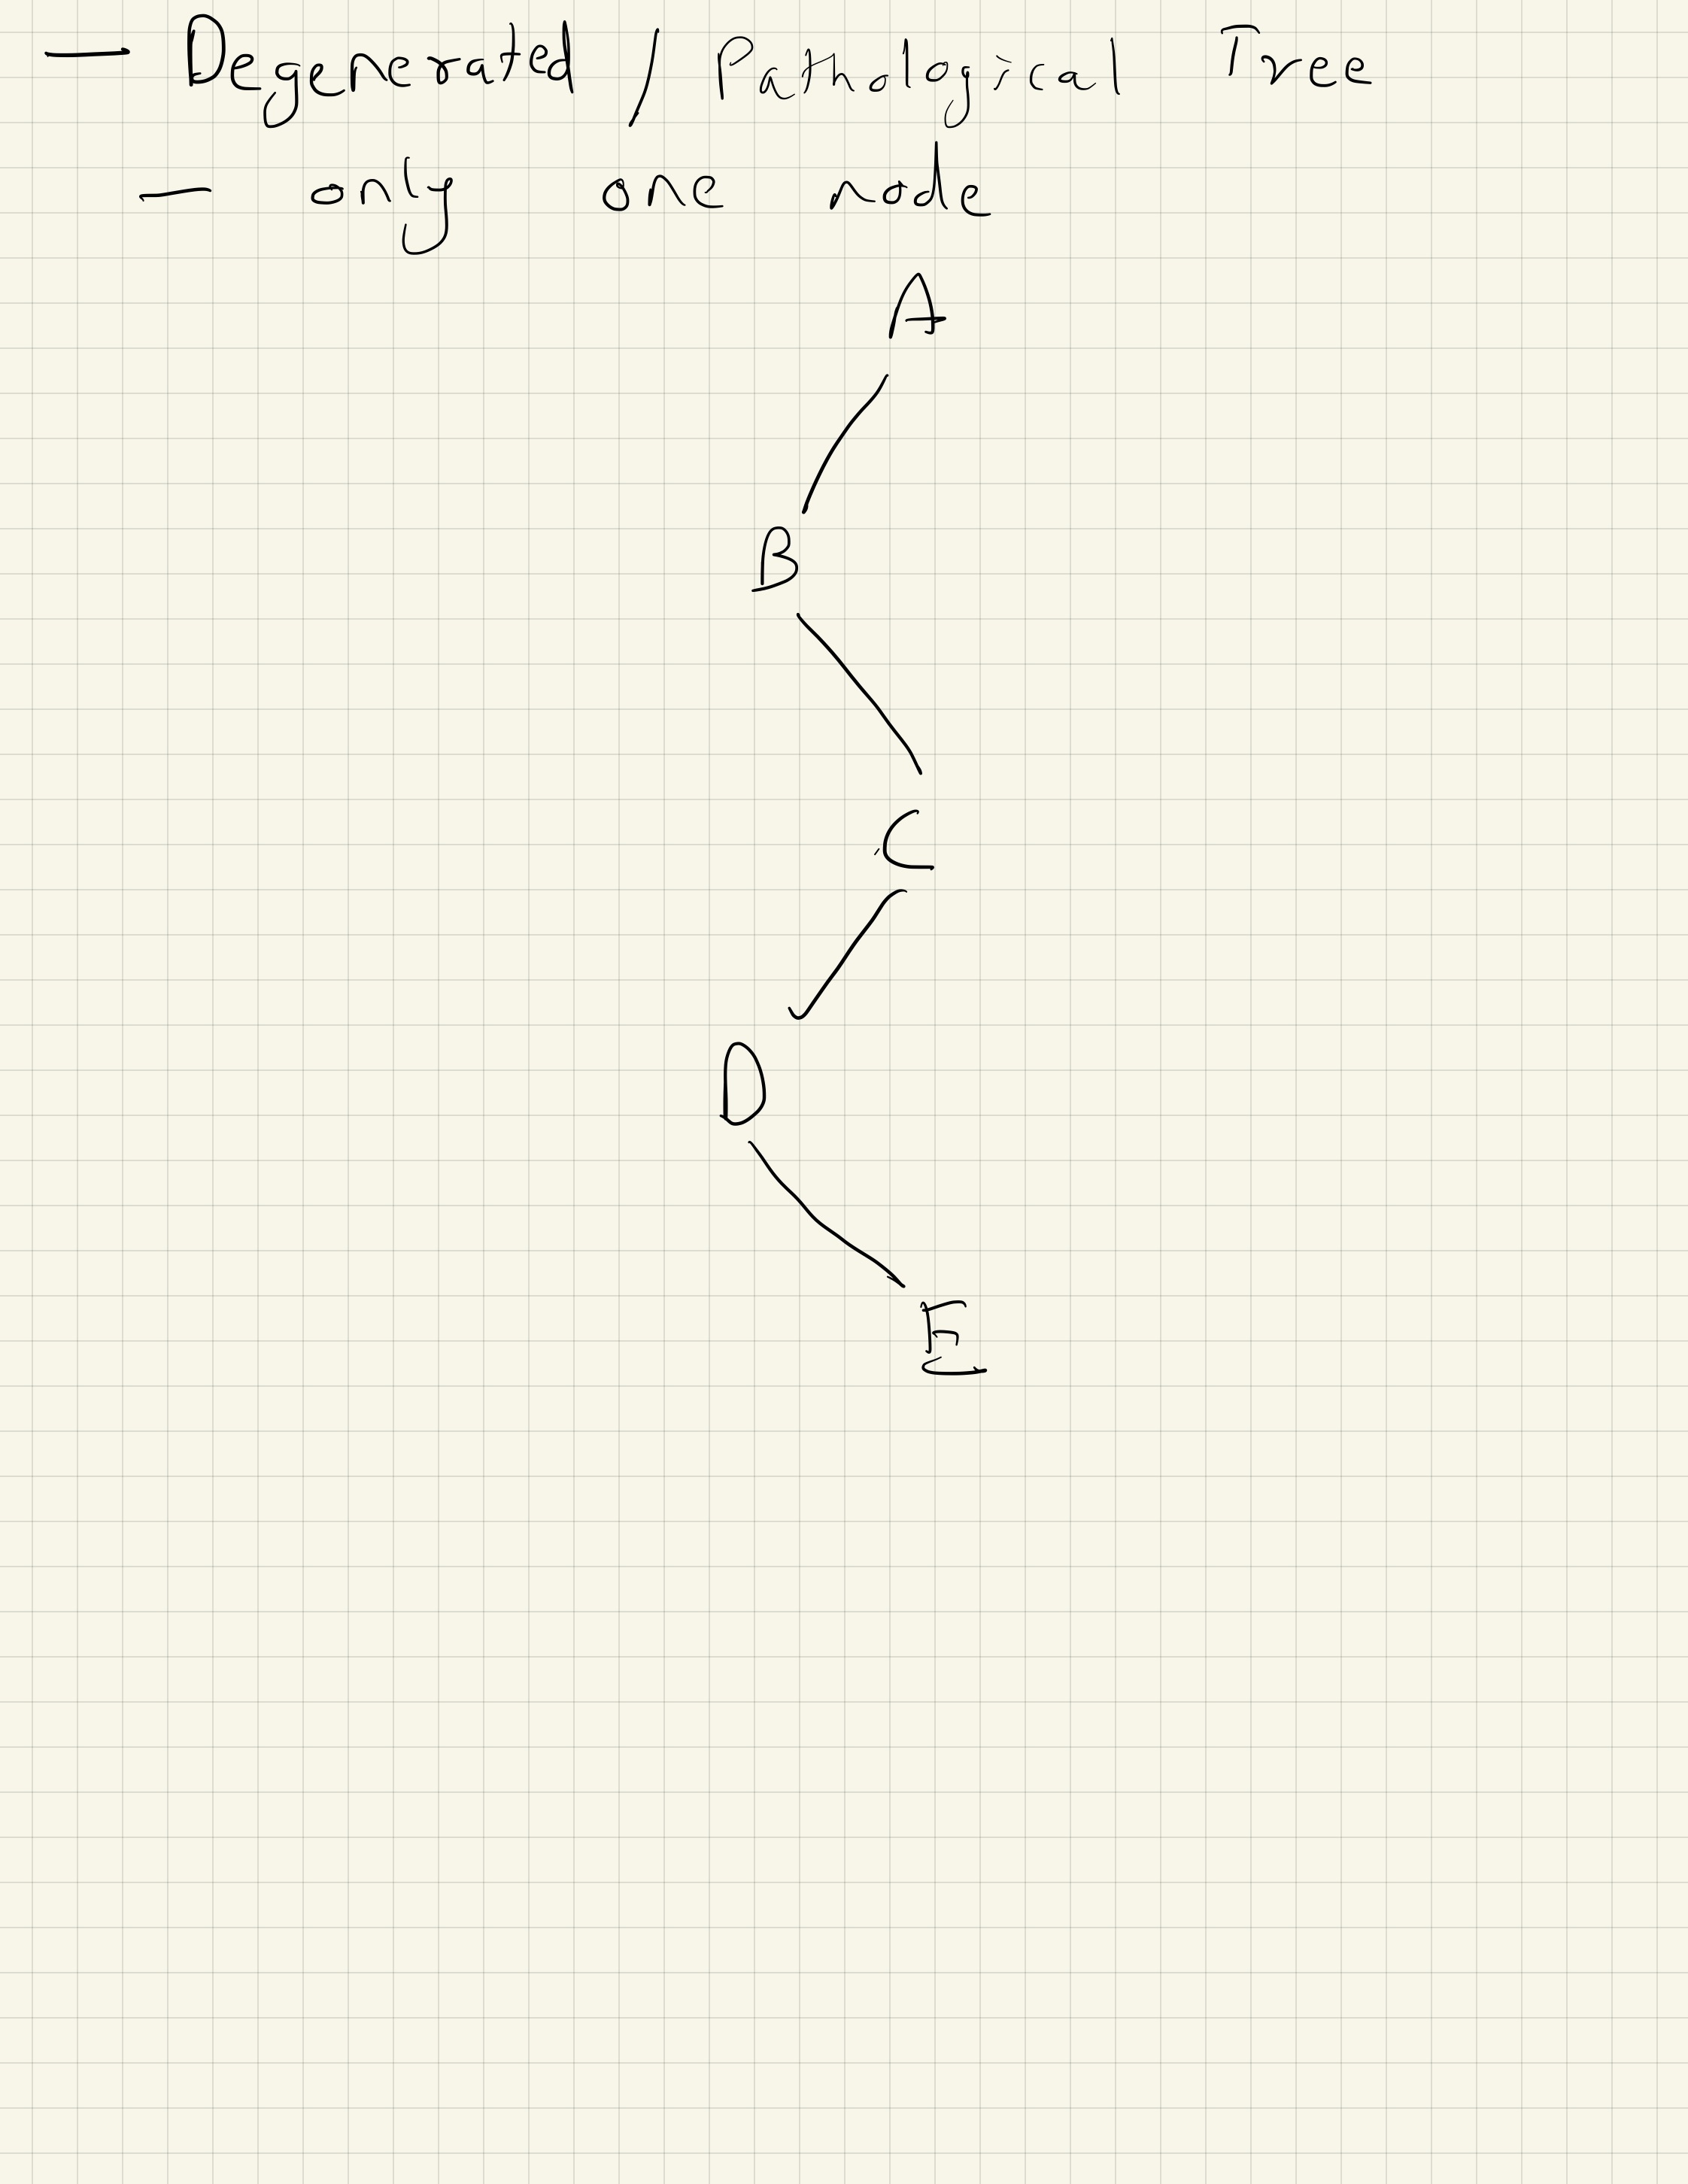 — Degenerated / Pathological Tree
— only one node
A
B
C
D
E